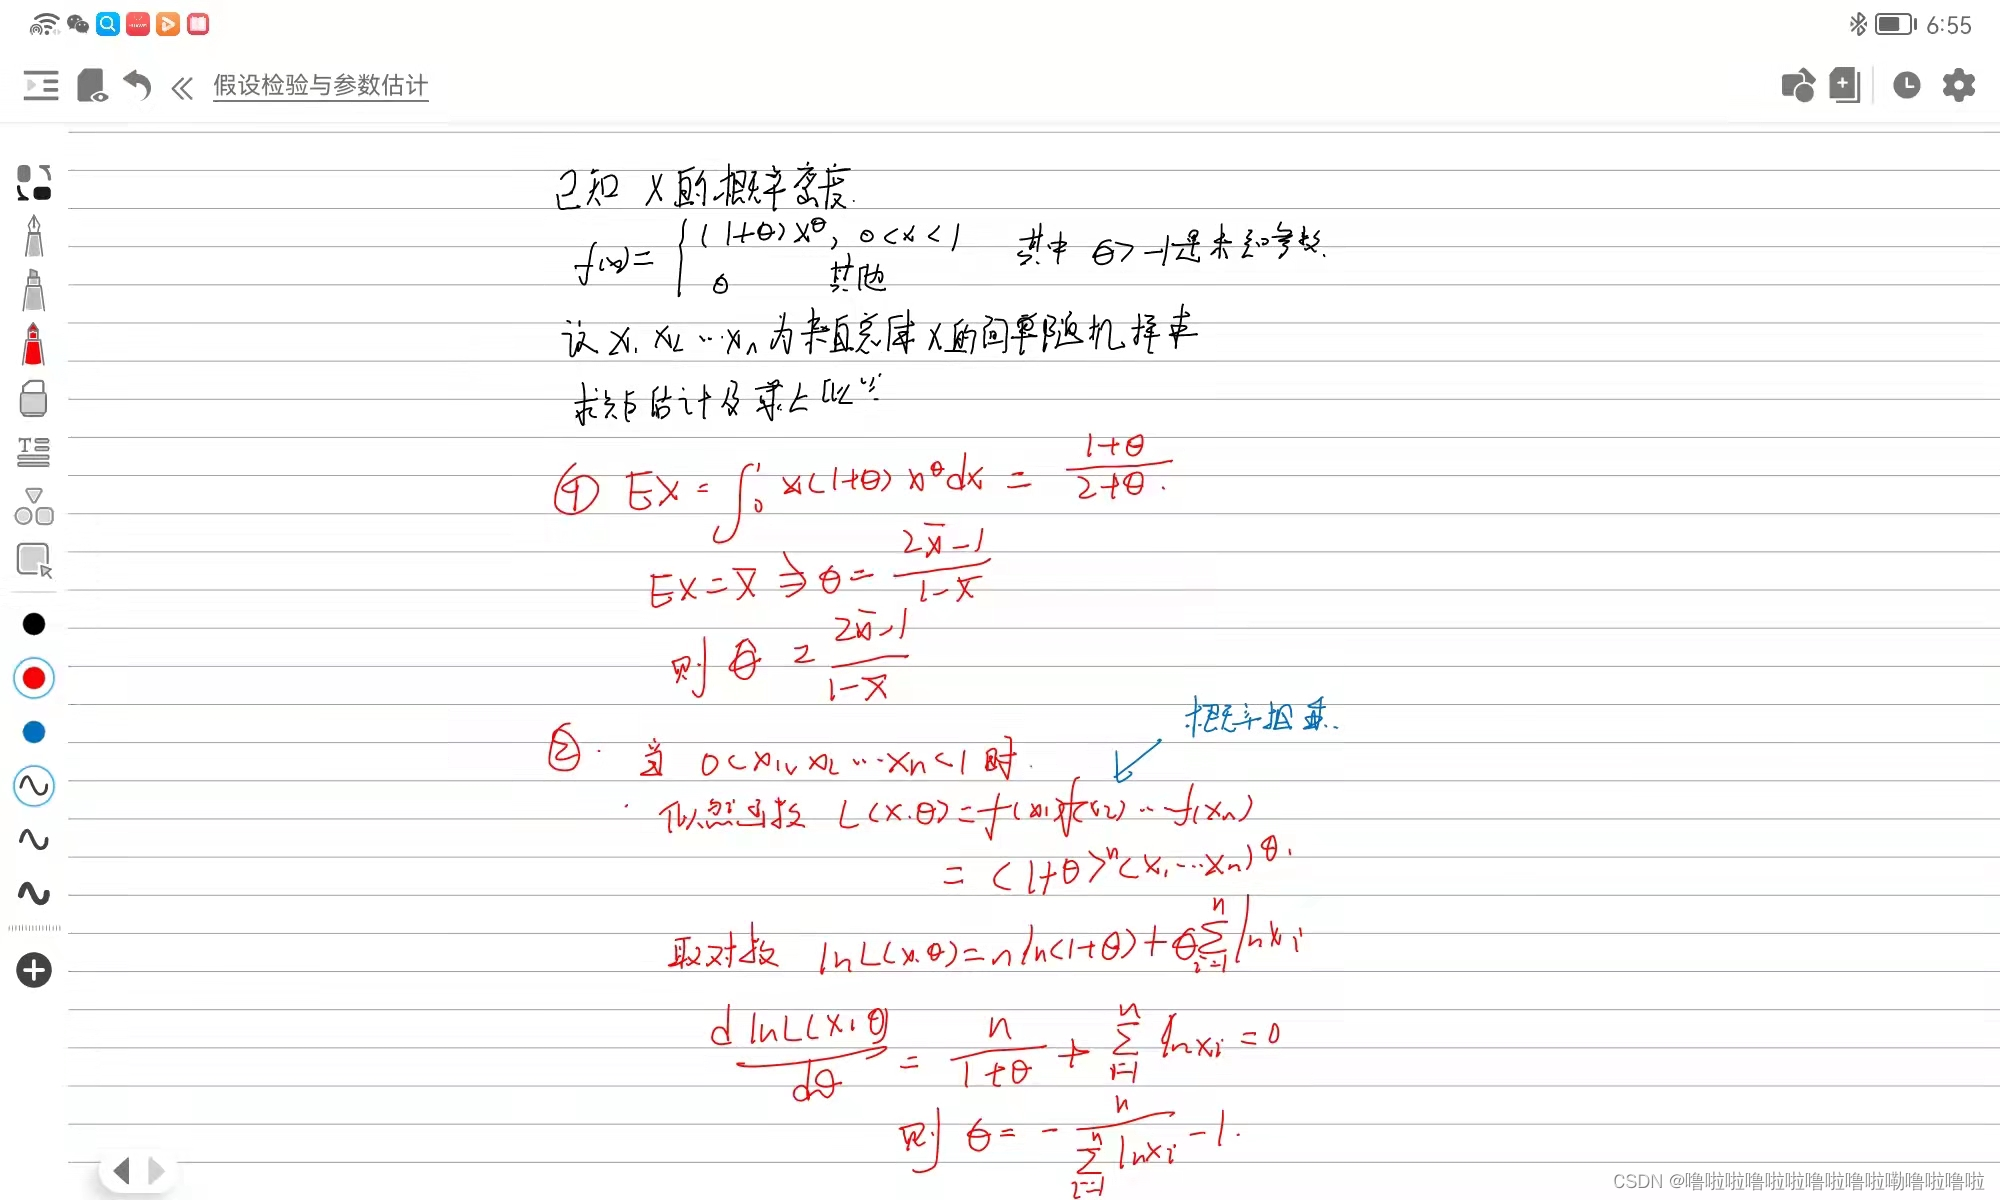 6:55
假设检验与参数估计
已知 X的概率密度.
f(x)= { (1+θ)x^θ, 0<x<1 其中 θ>-1是未知参数.
0 其他
设 x₁ x₂ …xₙ 为来自总体 X的简单随机样本
求矩估计及最大似
① EX = ∫₀¹ x(1+θ) x^θ dx = (1+θ)/(2+θ).
EX = x̄ ⇒ θ = (2x̄-1)/(1-x̄)
则 θ̂ = (2x̄-1)/(1-x̄)
概率相乘.
②. 当 0<x₁, x₂ …xₙ<1 时.
似然函数 L(x.θ)=f(x₁)f(x₂)…f(xₙ)
= (1+θ)ⁿ(x₁…xₙ)^θ.
取对数 lnL(x.θ)=n ln(1+θ)+θ∑ⁿᵢ₌₁ lnxᵢ
d lnL(x,θ)/dθ = n/(1+θ) + ∑ⁿᵢ₌₁ lnxᵢ = 0
则 θ = - n/(∑ⁿᵢ₌₁ lnxᵢ) - 1.
CSDN @噜啦啦噜啦啦噜啦噜啦嘞噜啦噜啦